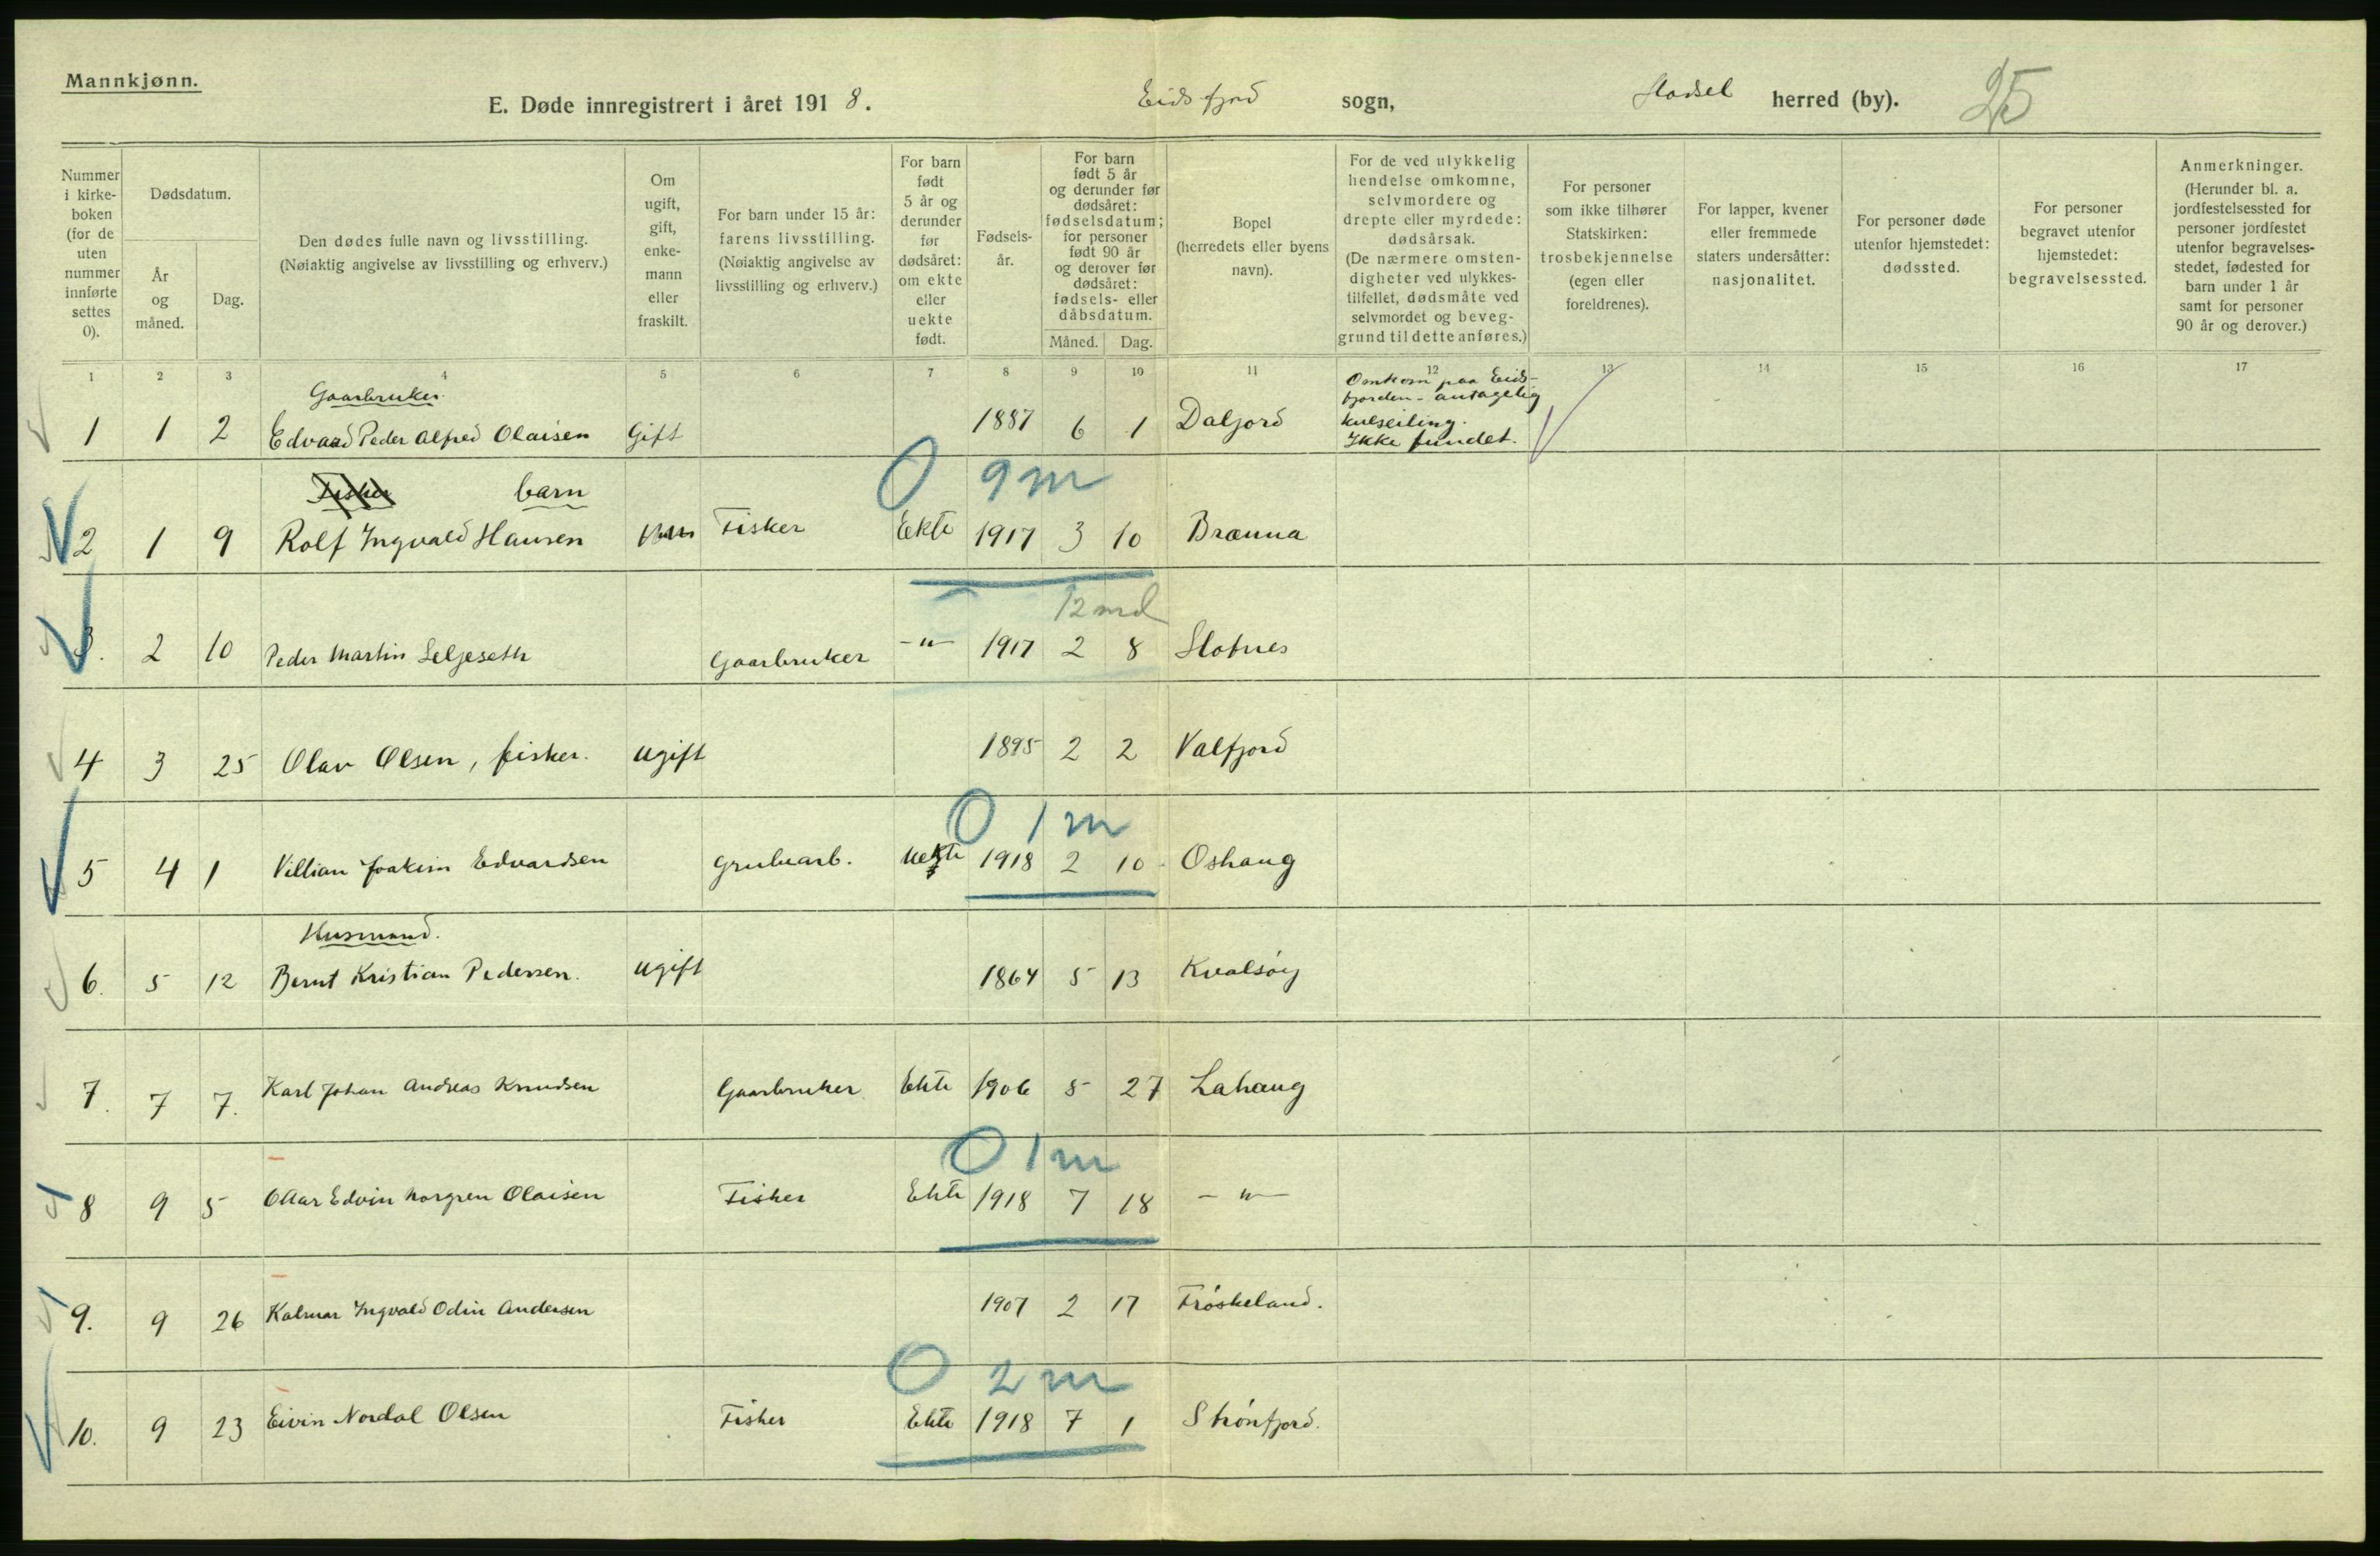 Mannkjønn.
E. Døde innregistrert i året 1918. Eidsfjord sogn, Hadsel herred (by). 25
Nummer i kirke-boken (for de uten nummer innførte settes 0).
Dødsdatum.
År og måned.
Dag.
Den dødes fulle navn og livsstilling. (Nøiaktig angivelse av livsstilling og erhverv.)
Om ugift, gift, enke-mann eller fraskilt.
For barn under 15 år: farens livsstilling. (Nøiaktig angivelse av livsstilling og erhverv.)
For barn født 5 år og derunder før dødsåret: om ekte eller uekte født.
Fødsels-år.
For barn født 5 år og derunder før dødsåret: fødselsdatum; for personer født 90 år og derover før dødsåret: fødsels- eller dåbsdatum.
Måned.
Dag.
Bopel (herredets eller byens navn).
For de ved ulykkelig hendelse omkomne, selvmordere og drepte eller myrdede: dødsårsak. (De nærmere omsten-digheter ved ulykkes-tilfellet, dødsmåte ved selvmordet og beveg-grund til dette anføres.)
For personer som ikke tilhører Statskirken: trosbekjennelse (egen eller foreldrenes).
For lapper, kvener eller fremmede staters undersåtter: nasjonalitet.
For personer døde utenfor hjemstedet: dødssted.
For personer begravet utenfor hjemstedet: begravelsessted.
Anmerkninger. (Herunder bl. a. jordfestelsessted for personer jordfestet utenfor begravelses-stedet, fødested for barn under 1 år samt for personer 90 år og derover.)
1 2 3 4 5 6 7 8 9 10 11 12 13 14 15 16 17
Gaarbruker.
1 1 2 Edvard Peder Alfred Olaisen Gift 1887 6 1 Daljord
Omkom paa Eids-
fjorden - antagelig
kulseiling.
Ikke fundet.
0 9 m
Fisker barn
2 1 9 Rolf Ingvald Hansen Fisker Ekte 1917 3 10 Brænna
12 md
3. 2 10 Peder Martin Seljeseth Gaarbruker -"- 1917 2 8 Slotnes
4 3 25 Olav Olsen, fisker. Ugift 1895 2 2 Valfjord
0 1 m
5 4 1 Villian Joakim Edvardsen Grubearb. Uekte 1918 2 10 Oshaug
Husmand.
6. 5 12 Bernt Kristian Pedersen. Ugift 1864 5 13 Kvalsøy
7. 7 7. Karl Johan Andreas Knudsen Gaarbruker Ekte 1906 5 27 Lahaug
0 1 m
8 9 5 Ottar Edvin Norgren Olaisen Fisker Ekte 1918 7 18 -"-
9. 9 26 Kalmar Ingvald Odin Andersen 1907 2 17 Frøskeland.
0 2 m
10. 9 23 Eivin Nordal Olsen Fisker Ekte 1918 7 1 Strønfjord.